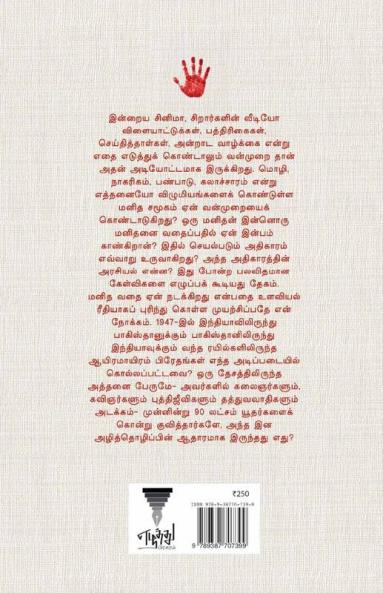 இன்றைய சினிமா, சிறார்களின் வீடியோ
விளையாட்டுக்கள், பத்திரிகைகள்,
செய்தித்தாள்கள், அன்றாட வாழ்க்கை என்று
எதை எடுத்துக் கொண்டாலும் வன்முறை தான்
அதன் அடியோட்டமாக இருக்கிறது. மொழி,
நாகரிகம், பண்பாடு, கலாச்சாரம் என்று
எத்தனையோ விழுமியங்களைக் கொண்டுள்ள
மனித சமூகம் ஏன் வன்முறையைக்
கொண்டாடுகிறது? ஒரு மனிதன் இன்னொரு
மனிதனை வதைப்பதில் ஏன் இன்பம்
காண்கிறான்? இதில் செயல்படும் அதிகாரம்
எவ்வாறு உருவாகிறது? அந்த அதிகாரத்தின்
அரசியல் என்ன? இது போன்ற பலவிதமான
கேள்விகளை எழுப்பக் கூடியது தேகம்.
மனித வதை ஏன் நடக்கிறது என்பதை உளவியல்
ரீதியாகப் புரிந்து கொள்ள முயற்சிப்பதே என்
நோக்கம். 1947-இல் இந்தியாவிலிருந்து
பாகிஸ்தானுக்கும் பாகிஸ்தானிலிருந்து
இந்தியாவுக்கும் வந்த ரயில்களிலிருந்த
ஆயிரமாயிரம் பிரேதங்கள் எந்த அடிப்படையில்
கொல்லப்பட்டவை? ஒரு தேசத்திலிருந்த
அத்தனை பேருமே- அவர்களில் கலைஞர்களும்,
கவிஞர்களும் புத்திஜீவிகளும் தத்துவவாதிகளும்
அடக்கம்- முன்னின்று 90 லட்சம் யூதர்களைக்
கொன்று குவித்தார்களே, அந்த இன
அழித்தொழிப்பின் ஆதாரமாக இருந்தது எது?
₹250
ISBN 978-9-38770-739-9
9 789387 707399
எழுத்து
பிரசுரம்